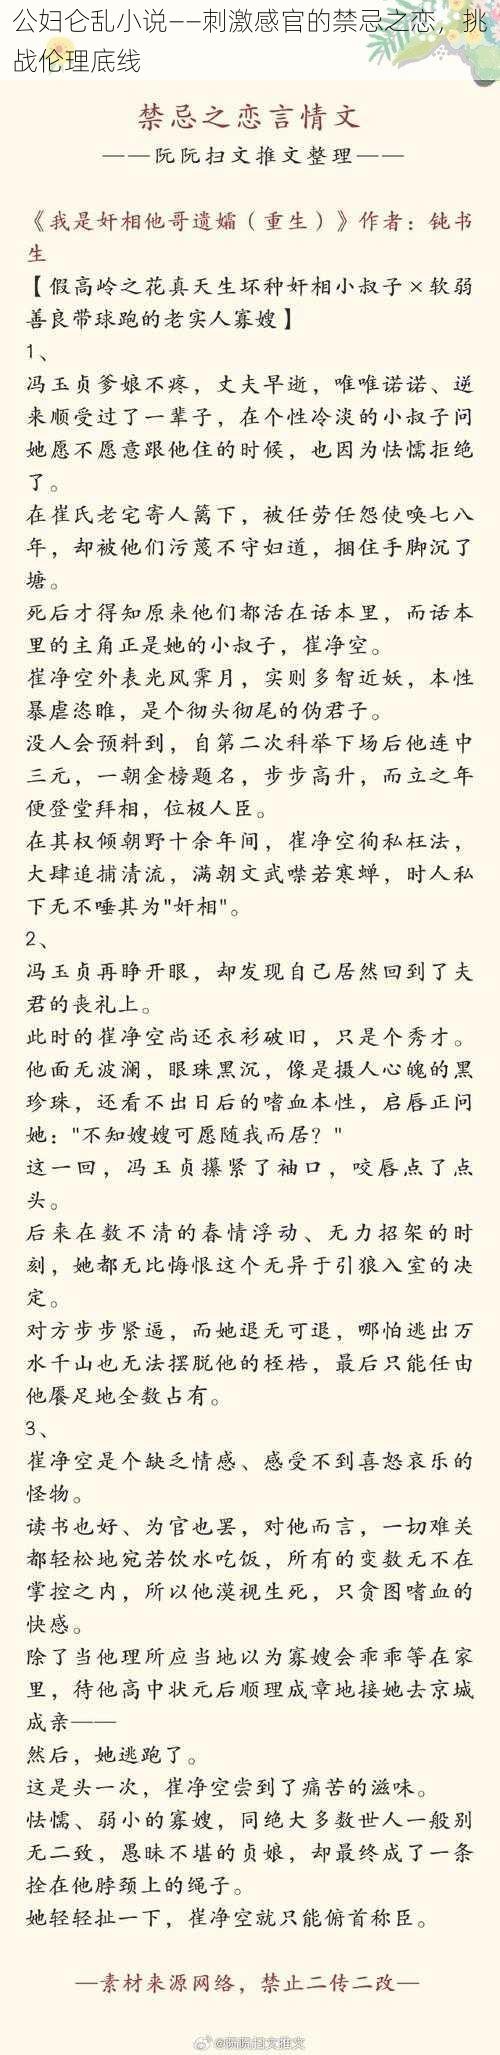 公妇仑乱小说——刺激感官的禁忌之恋，挑
战伦理底线
禁忌之恋言情文
——阮阮扫文推文整理——
《我是奸相他哥遗孀（重生）》作者：钝书
生
【假高岭之花真天生坏种奸相小叔子×软弱
善良带球跑的老实人寡嫂】
1、
冯玉贞爹娘不疼，丈夫早逝，唯唯诺诺、逆
来顺受过了一辈子，在个性冷淡的小叔子问
她愿不愿意跟他住的时候，也因为怯懦拒绝
了。
在崔氏老宅寄人篱下，被任劳任怨使唤七八
年，却被他们污蔑不守妇道，捆住手脚沉了
塘。
死后才得知原来他们都活在话本里，而话本
里的主角正是她的小叔子，崔净空。
崔净空外表光风霁月，实则多智近妖，本性
暴虐恣睢，是个彻头彻尾的伪君子。
没人会预料到，自第二次科举下场后他连中
三元，一朝金榜题名，步步高升，而立之年
便登堂拜相，位极人臣。
在其权倾朝野十余年间，崔净空徇私枉法，
大肆追捕清流，满朝文武噤若寒蝉，时人私
下无不唾其为"奸相"。
2、
冯玉贞再睁开眼，却发现自己居然回到了夫
君的丧礼上。
此时的崔净空尚还衣衫破旧，只是个秀才。
他面无波澜，眼珠黑沉，像是摄人心魄的黑
珍珠，还看不出日后的嗜血本性，启唇正问
她："不知嫂嫂可愿随我而居？"
这一回，冯玉贞攥紧了袖口，咬唇点了点
头。
后来在数不清的春情浮动、无力招架的时
刻，她都无比悔恨这个无异于引狼入室的决
定。
对方步步紧逼，而她退无可退，哪怕逃出万
水千山也无法摆脱他的桎梏，最后只能任由
他餍足地全数占有。
3、
崔净空是个缺乏情感、感受不到喜怒哀乐的
怪物。
读书也好、为官也罢，对他而言，一切难关
都轻松地宛若饮水吃饭，所有的变数无不在
掌控之内，所以他漠视生死，只贪图嗜血的
快感。
除了当他理所应当地以为寡嫂会乖乖等在家
里，待他高中状元后顺理成章地接她去京城
成亲——
然后，她逃跑了。
这是头一次，崔净空尝到了痛苦的滋味。
怯懦、弱小的寡嫂，同绝大多数世人一般别
无二致，愚昧不堪的贞娘，却最终成了一条
拴在他脖颈上的绳子。
她轻轻扯一下，崔净空就只能俯首称臣。
—素材来源网络，禁止二传二改—
@阮阮扫文推文